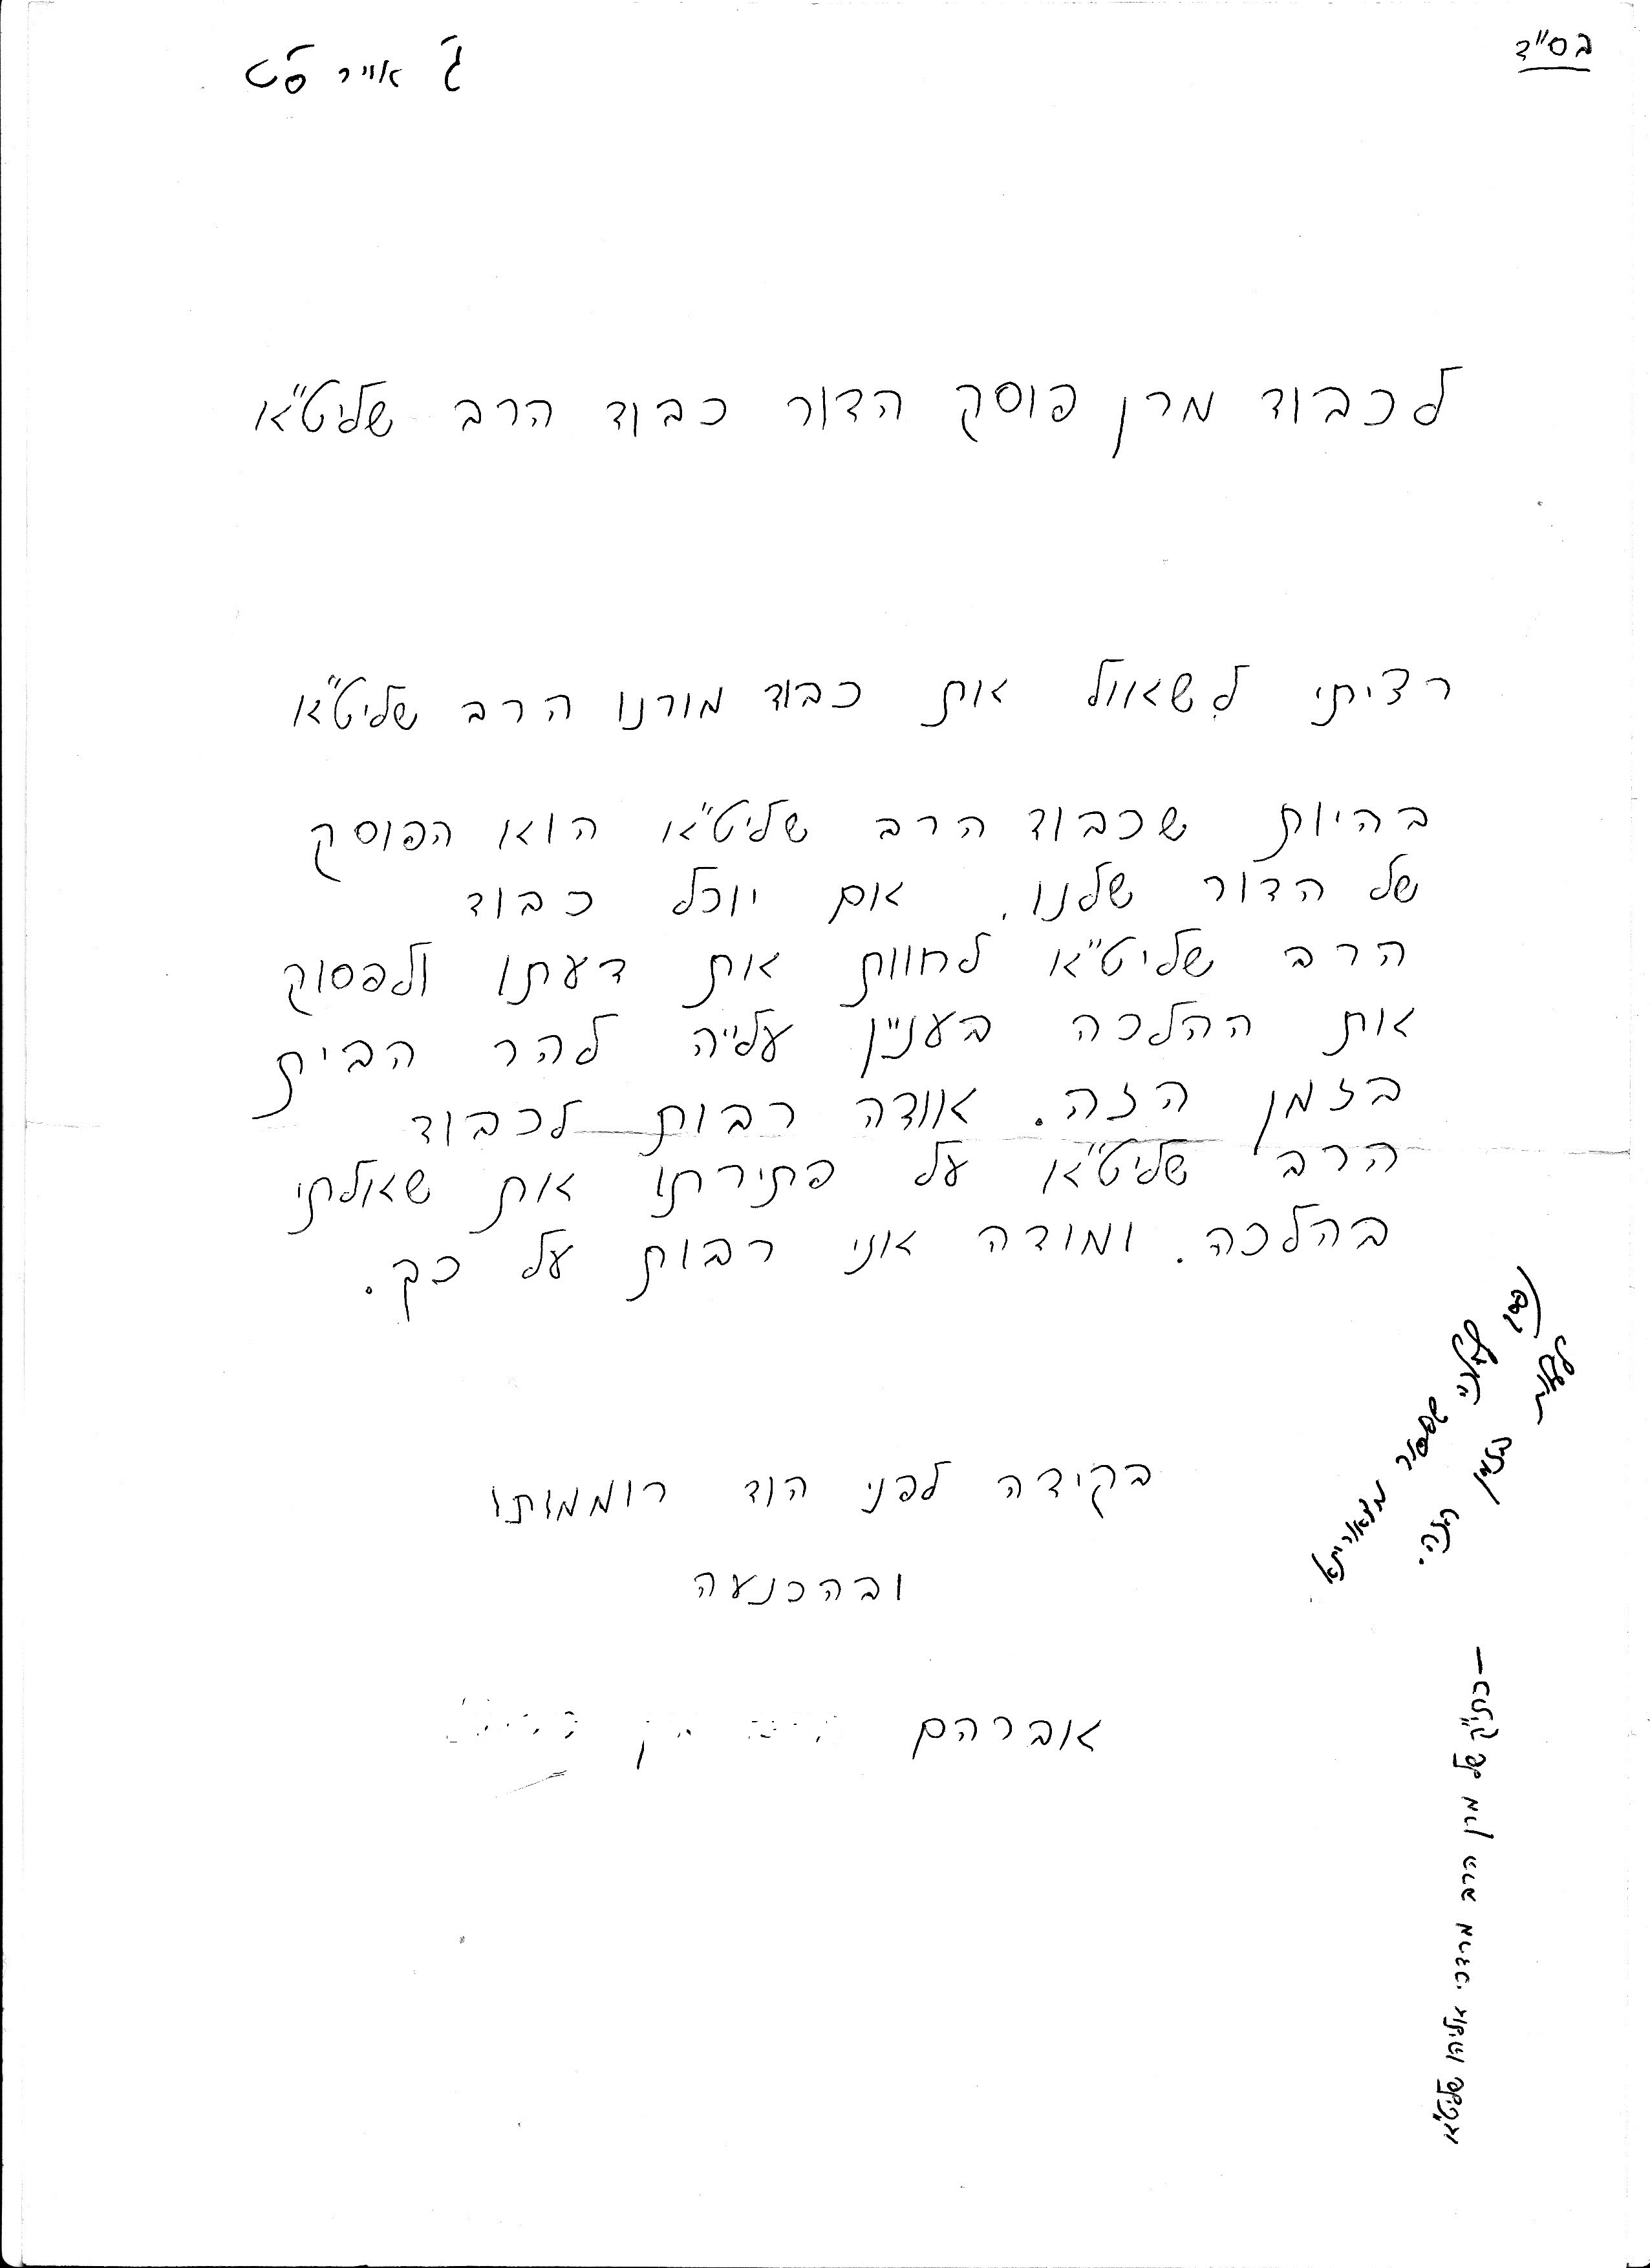 בס"ד
ג' אייר ס"ט
לכבוד מרן פוסק הדור כבוד הרב שליט"א
רציתי לשאול את כבוד מורנו הרב שליט"א
בהיות שכבוד הרב שליט"א הוא הפוסק
של הדור שלנו. אם יוכל כבוד
הרב שליט"א לחוות את דעתו ולפסוק
את ההלכה בעניין עלייה להר הבית
בזמן הזה. אודה רבות לכבוד
הרב שליט"א על פתירתו את שאלתי
בהלכה. ומודה אני רבות על כך.
בקידה לפני הוד רוממותו
ובהכנעה
אברהם
שאסור מדאורייתא
לעלות בזמן הזה.
- כתי"ק של מרן הרב מרדכי אליהו שליט"א